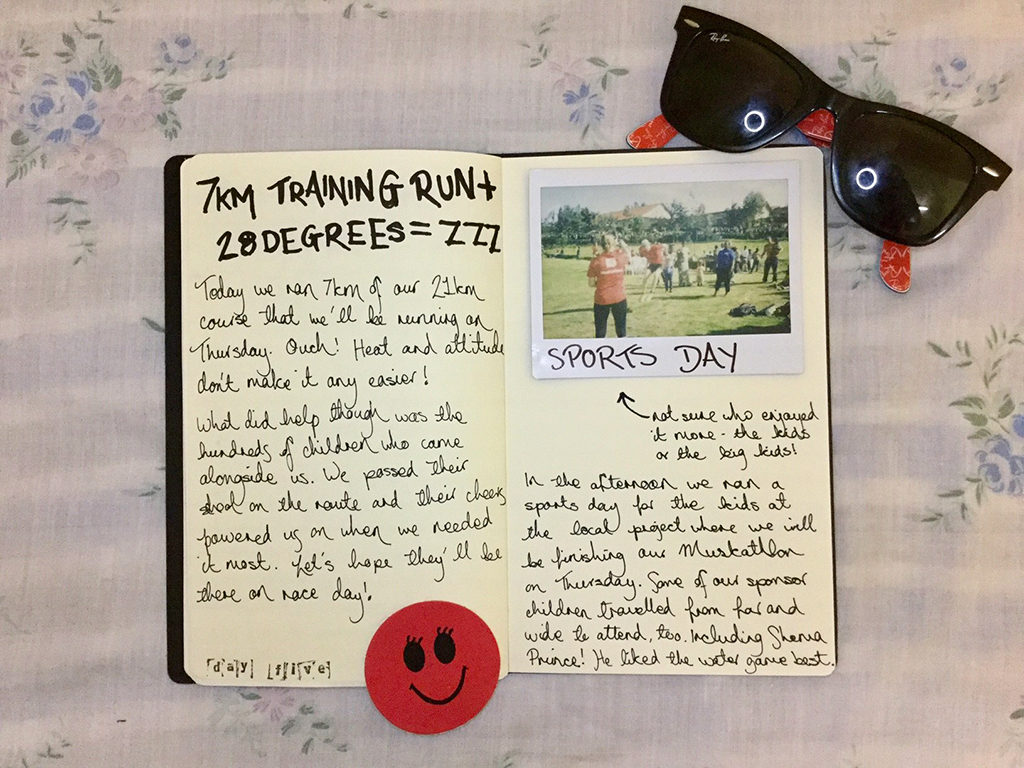 7KM TRAINING RUN +
28 DEGREES = ZZZ
Today we ran 7km of our 21km
course that we'll be running on
Thursday. Ouch! Heat and attitude
don't make it any easier!
What did help though was the
hundreds of children who came
alongside us. We passed their
school on the route and their cheers
powered us on when we needed
it most. Let's hope they'll be
there on race day!
day five
SPORTS DAY
not sure who enjoyed
it more - the kids
or the big kids!
In the afternoon we ran a
sports day for the kids at
the local project where we will
be finishing our Muskathlon
on Thursday. Some of our sponsor
children travelled from far and
wide to attend, too. Including
Prince! He liked the water game best.
Ray-Ban